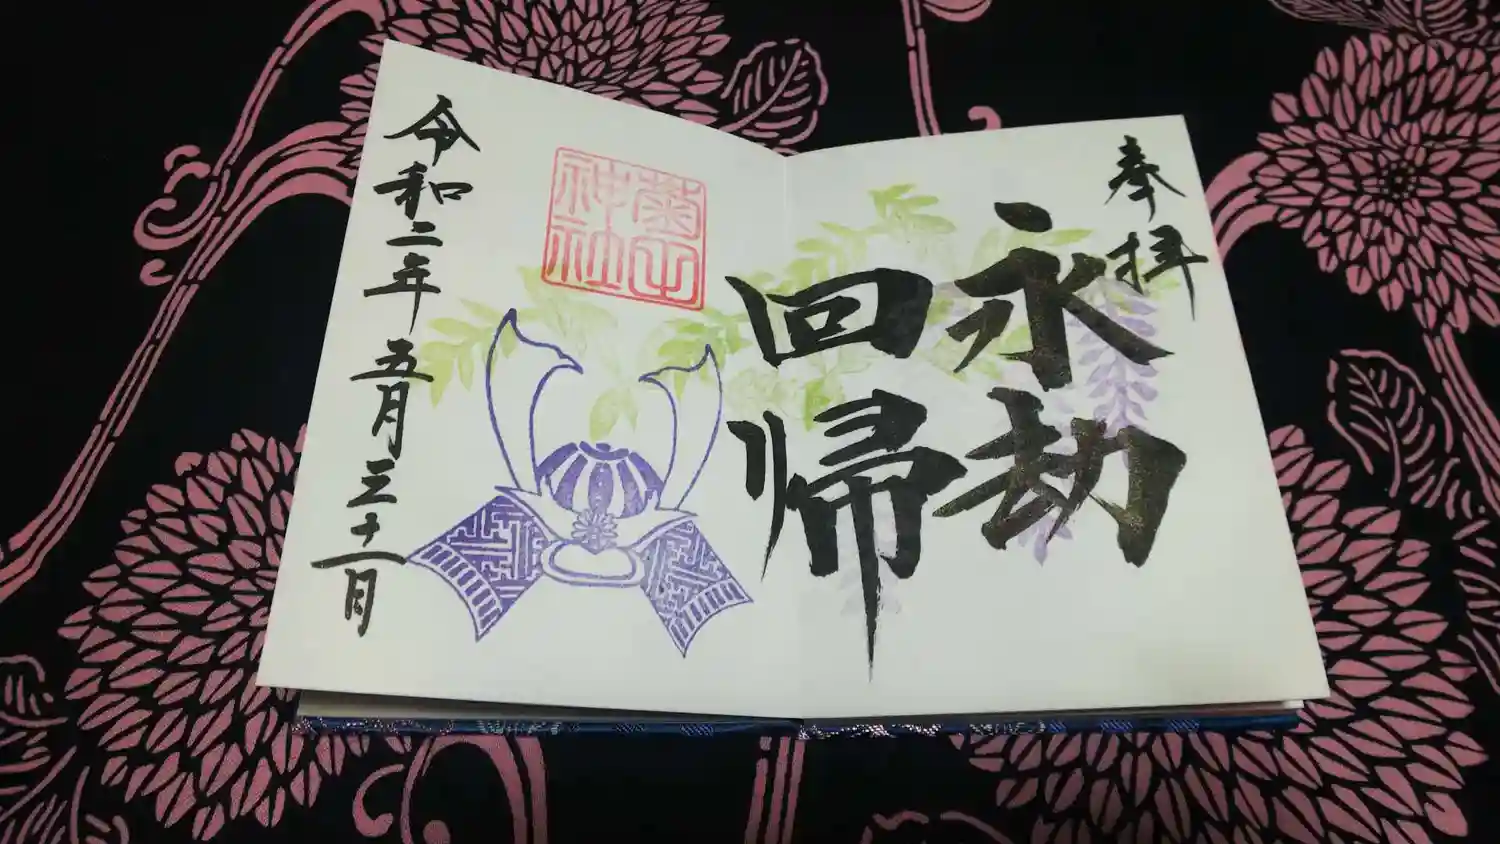 奉拝
永劫
回帰
菊山
神社
令和二年五月三十一日